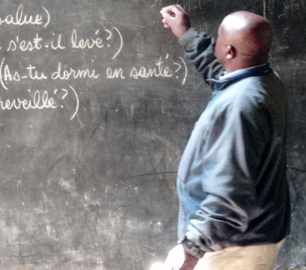 salue)
s'est-il levé?)
(As-tu dormi en santé?)
reveillé?)